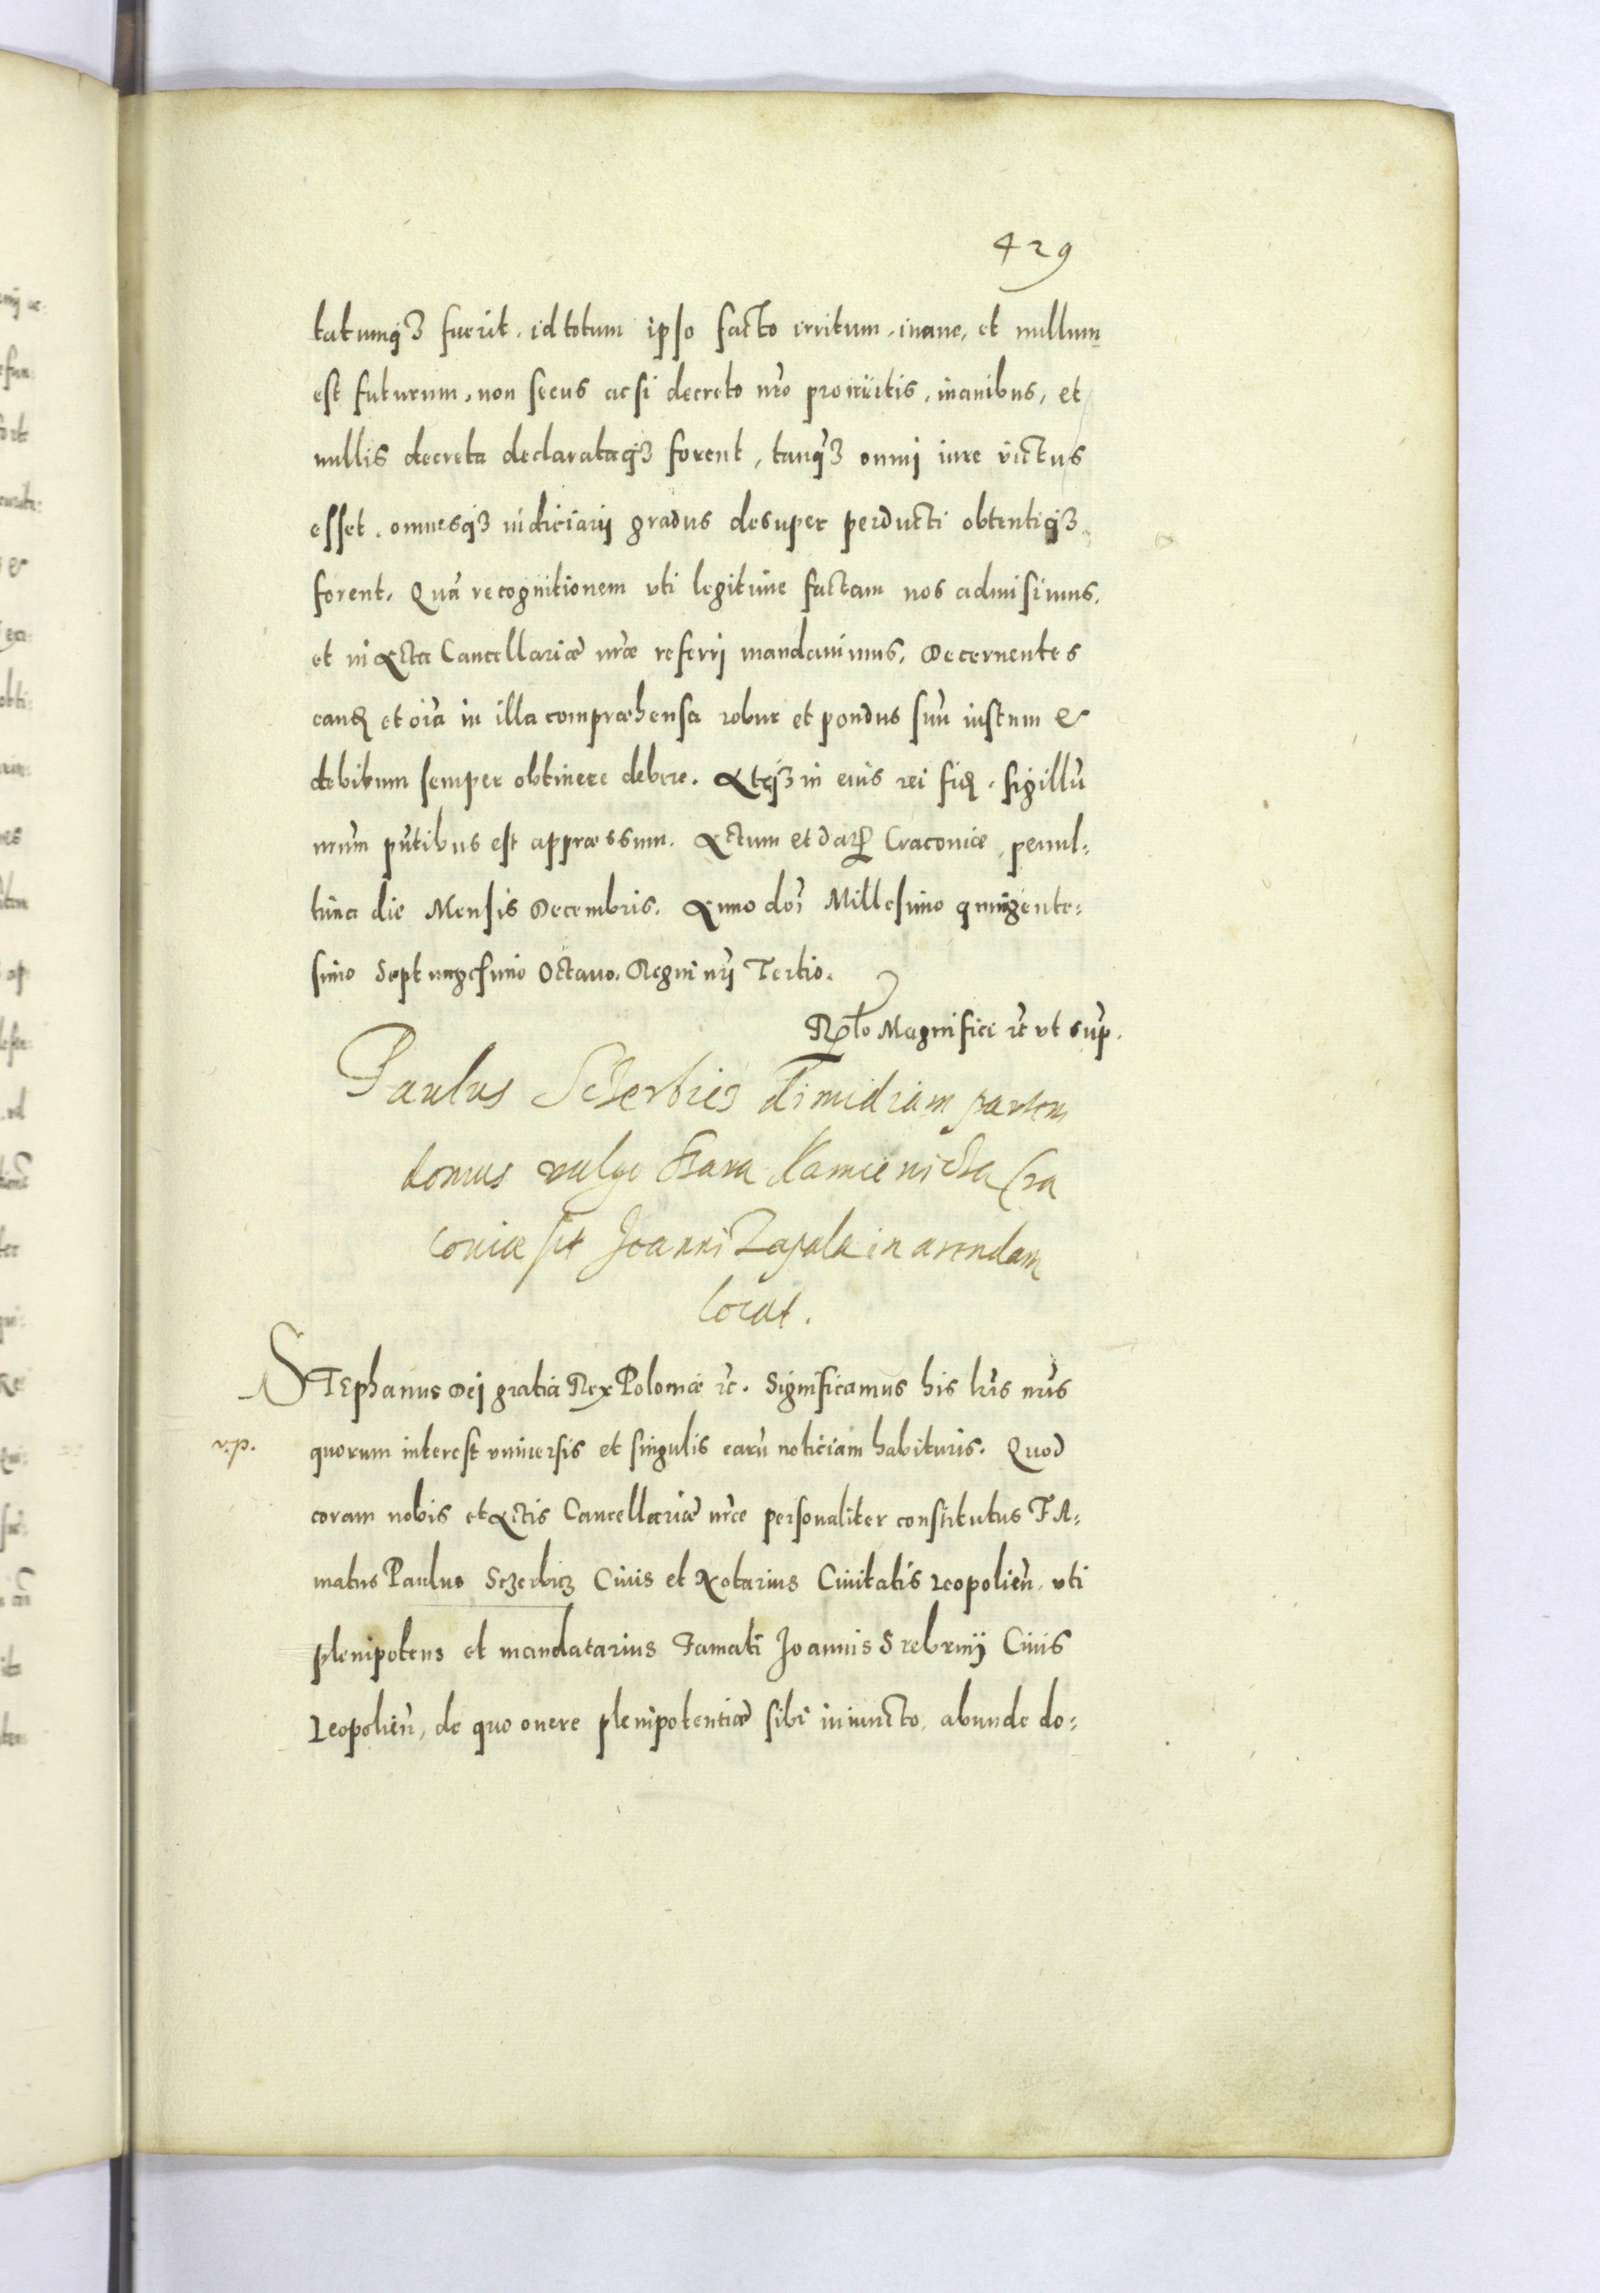 429
tatumq3 fuerit, id totum ipso facto irritum, inane, et nullum
est futurum, non secus ac si decreto nro pro irritis, inanibus, et
nullis decreta declarataq3 forent, tanq3 omni iure victus
esset, omnesq3 iudiciarij gradus desuper perducti obtentiq3
forent. Quã recognitionem vti legitime factam nos admisimus,
et in Acta Cancellariæ nræ referri mandauimus, Decernentes
eand et oia in illa compræhensa robur et pondus suũ iustum &
debitum semper obtinere debere. Atq3 in eius rei fid, sigillũ
nrum pñtibus est appræssum. Actum et dat Cracouiæ, penul-
tima die Mensis Decembris. Anno doi Millesimo quingente-
simo Septuagesimo Octauo. Regni nri Tertio.
Rlo Magnifici rc vt sup.
Paulus Sczerbicz dimidiam partem
domus vulgo Szara Kamienicza Cra
couiæ sit Joanni Zapala in arendam
locat.
STEphanus Dei gratia Rex Poloniæ rc. Significamus his lris nris
v.p.
quorum interest vniuersis et singulis earũ noticiam habituris. Quod
coram nobis et Actis Cancellariæ nræ personaliter constitutus FA-
matus Paulus Sczerbicz Ciuis et Notarius Ciuitatis Leopolien, vti
plenipotens et mandatarius Famati Joannis Srebrnij Ciuis
Leopolien, de quo onere plenipotentiæ sibi iniuncto, abunde do-